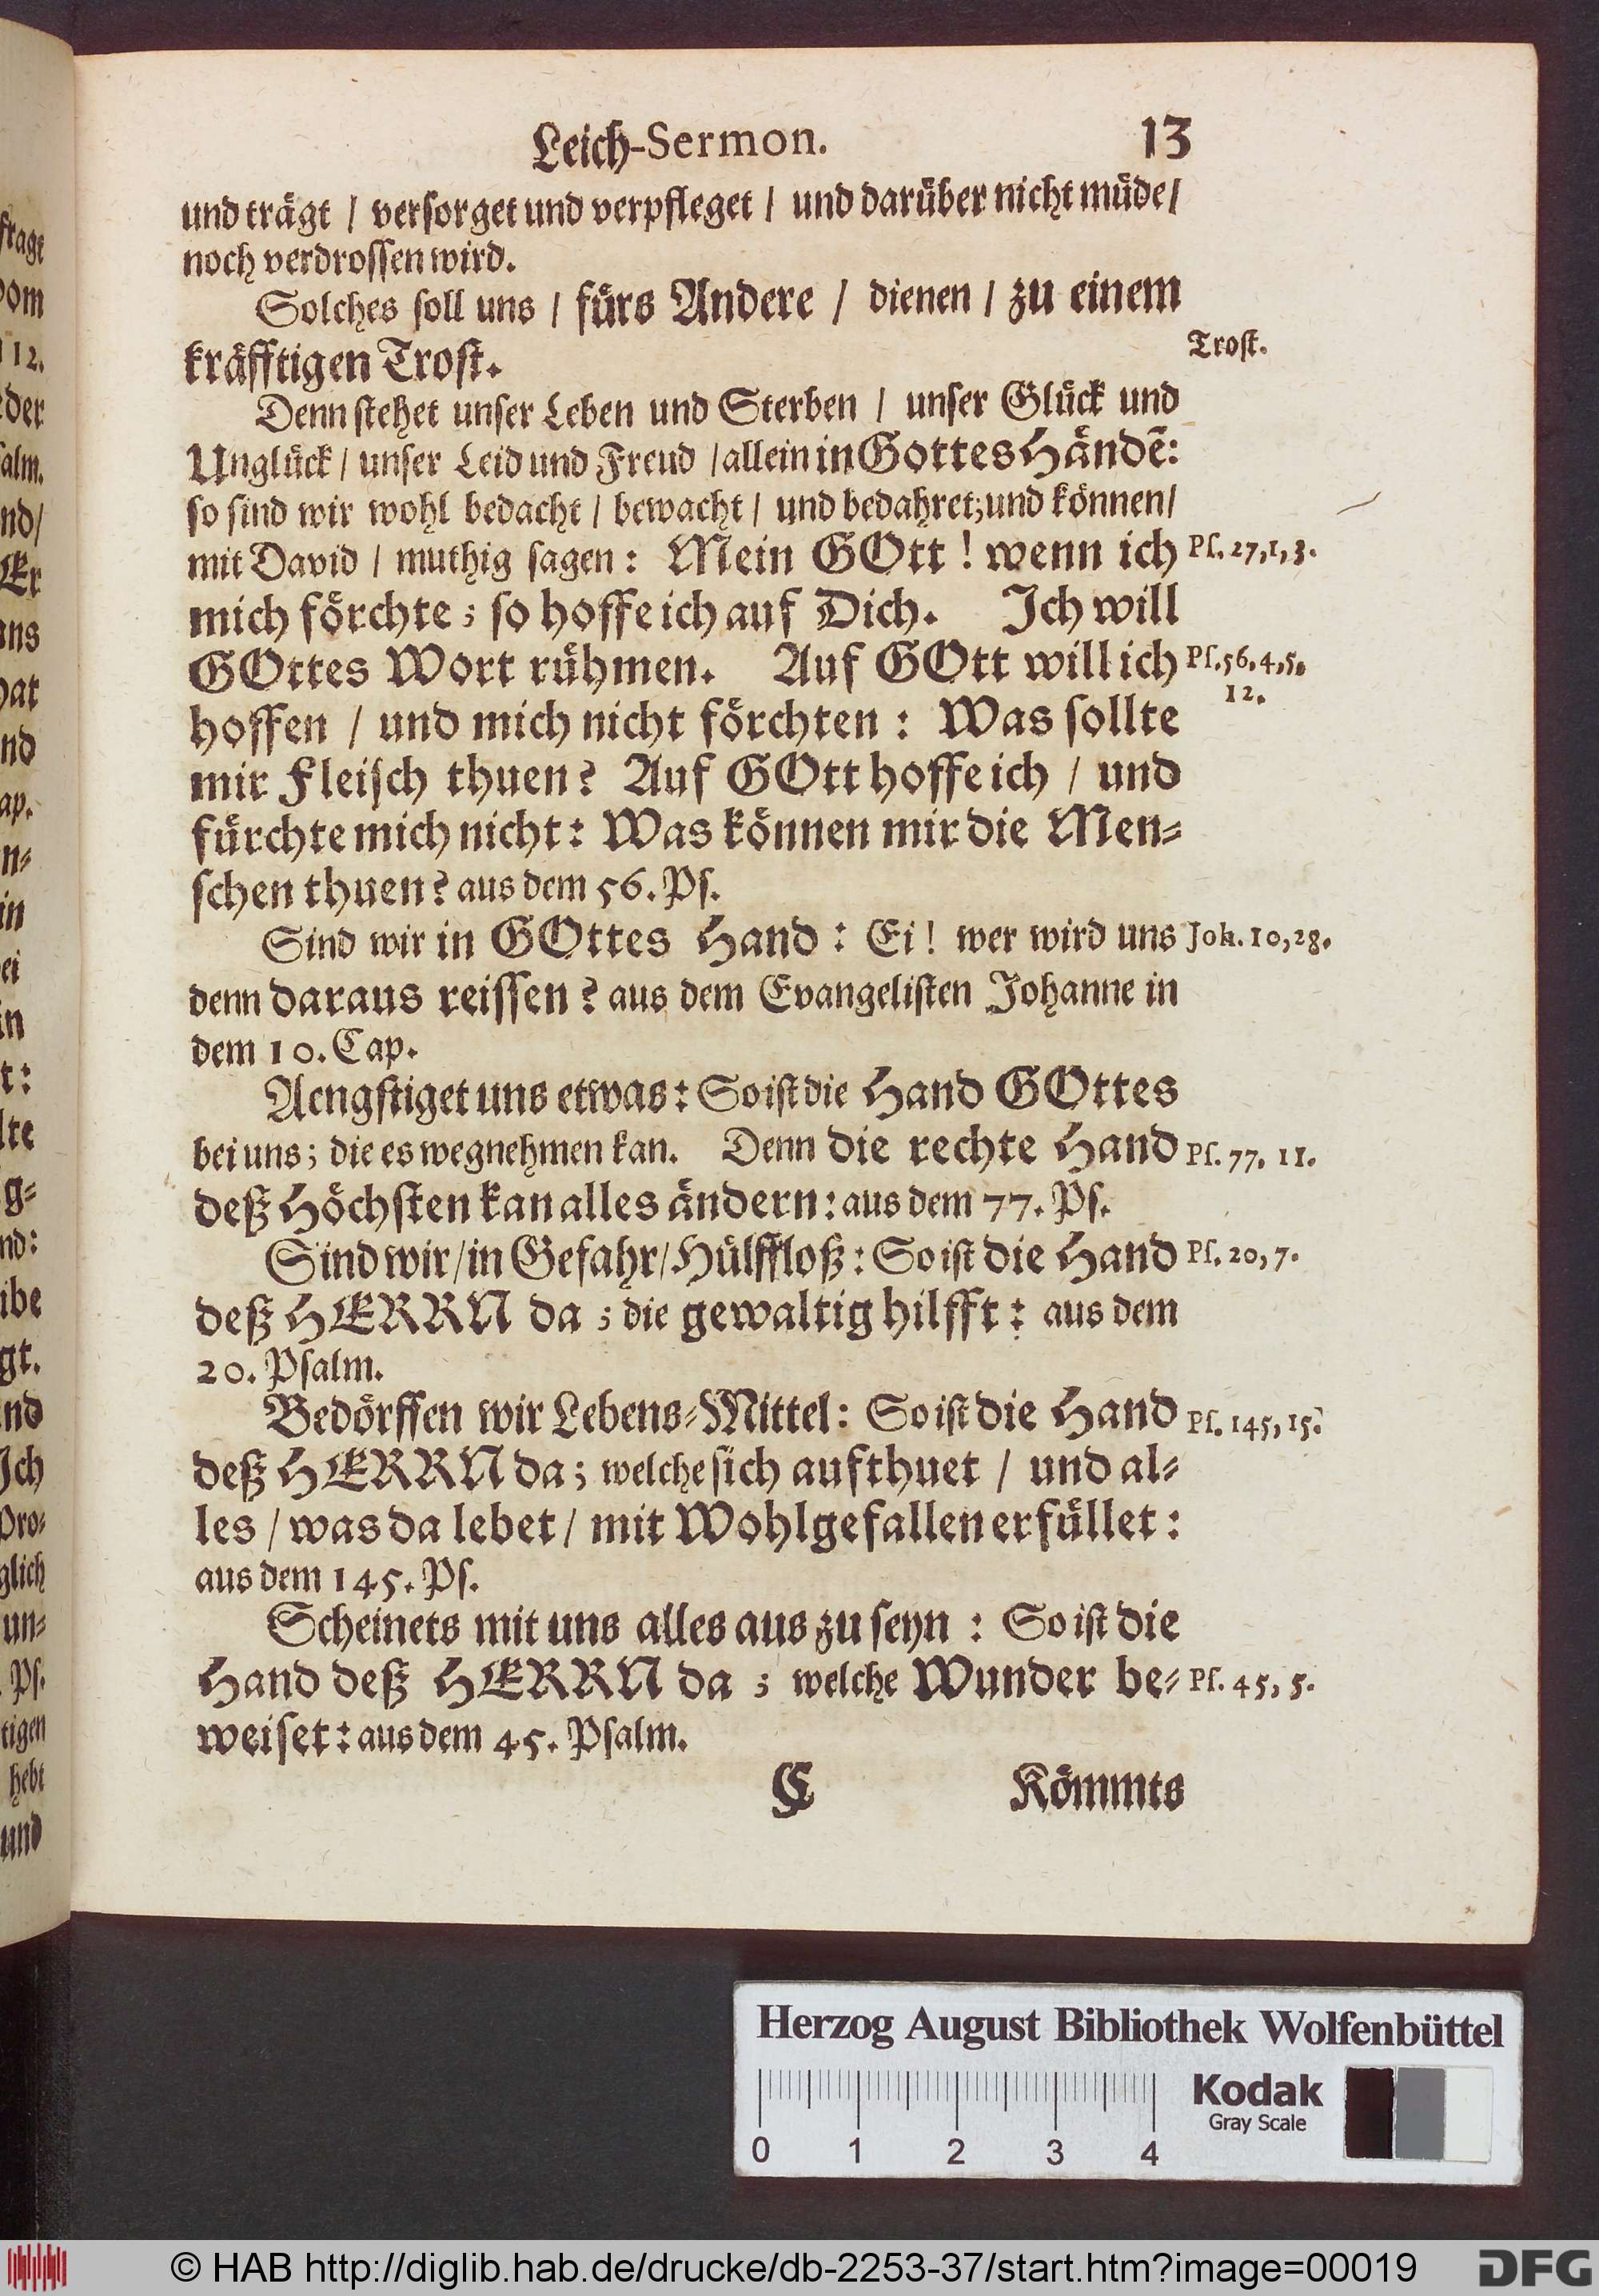 Leich-Sermon. 13
und trågt / versorget und verpfleget / und darüber nicht müde /
noch verdrossen wird.
Solches soll uns / fürs Andere / dienen / zu einem
kräfftigen Trost.
Trost.
Denn stehet unser Leben und Sterben / unser Glück und
Unglück / unser Leid und Freud / allein in Gottes Händē:
so sind wir wohl bedacht / bewacht / und bedahret; und können /
mit David / muthig sagen: Mein GOtt! wenn ich
Ps. 27, 1, 3.
mich förchte; so hoffe ich auf Dich. Ich will
GOttes Wort rühmen. Auf GOtt will ich
Ps. 56. 4. 5.
12.
hoffen / und mich nicht förchten: Was sollte
mir Fleisch thuen? Auf GOtt hoffe ich / und
fürchte mich nicht: Was können mir die Men-
schen thuen? aus dem 56. Ps.
Sind wir in GOttes Hand: Ei! wer wird uns
Joh. 10, 28.
denn daraus reissen? aus dem Evangelisten Johanne in
dem 10. Cap.
Aengstiget uns etwas: So ist die Hand GOttes
bei uns; die es wegnehmen kan. Denn die rechte Hand
Ps. 77. 11.
deß Höchsten kan alles ändern: aus dem 77. Ps.
Sind wir / in Gefahr / Hülffloß: So ist die Hand
Ps. 20, 7.
deß HERRN da; die gewaltig hilfft: aus dem
20. Psalm.
Bedörffen wir Lebens-Mittel: So ist die Hand
Ps. 145, 15.
deß HERRN da; welche sich aufthuet / und al-
les / was da lebet / mit Wohlgefallen erfüllet:
aus dem 145. Ps.
Scheinets mit uns alles aus zu seyn: So ist die
Hand deß HERRN da; welche Wunder be-
Ps. 45, 5.
weiset: aus dem 45. Psalm.
C Kömmts
Herzog August Bibliothek Wolfenbüttel
Kodak
Gray Scale
0 1 2 3 4
© HAB http://diglib.hab.de/drucke/db-2253-37/start.htm?image=00019
DFG